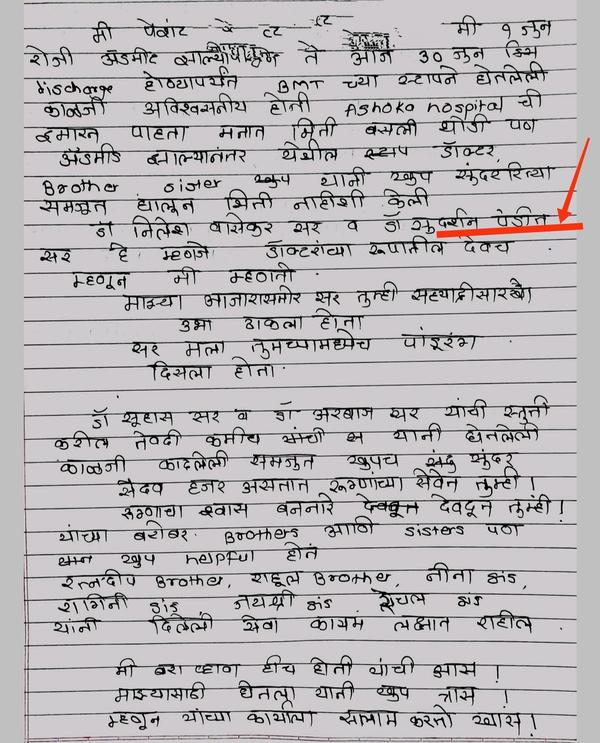 मी पेशंट
मी १ जुन
रोजी अ‍ॅडमीट झाल्यापासुन ते आज 30 जुन डिस
discharge होण्यापर्यंत BMT च्या स्टापने घेतलेली
काळजी अविश्वसनीय होती Ashoka hospital ची
इमारत पाहता मनात भिती बसली थोडी पण
अ‍ॅडमीड झाल्यानंतर येथील स्टाप डॉक्टर,
Brother sister खुप यांनी खुप सुंदररित्या
समजुत घालून भिती नाहीशी केली
डॉ निलेश वासेकर सर व डॉ सुदर्शन पंडीत
सर हे म्हणजे डॉक्टरांच्या रूपातील देवच
म्हणून मी म्हणतो
माझ्या आजारासमोर सर तुम्ही सह्याद्रीसारखे
उभा ठाकला होता
सर मला तुमच्यामध्येच पांडूरंग
दिसला होता.
डॉ सूहास सर व डॉ अरबाज सर यांची स्तुती
करील तेवढी कमीच यांनी घेतलेली
काळजी काढलेली समजुत खुपच सुंदर
सदैव हजर असतात रूग्णाच्या सेवेत तुम्ही!
रूग्णाचा श्वास बननारे देवदून तुम्ही!
यांच्या बरोबर Brothers आणि sisters पण
खुप helpful होते
रत्नदीप Brother, राहूल Brother, नीना
रागिनी जयश्री रोचल
यांनी दिलेली सेवा कायम लक्षात राहील
मी बरा व्हाव हीच होती यांची आस!
माझ्यासाठी घेतला यांनी खुप त्रास!
म्हणून यांच्या कार्याला सलाम करतो खास!